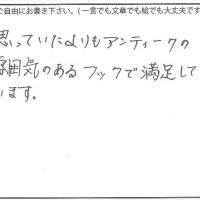 ご自由にお書き下さい。(一言でも文章でも絵でも大丈夫です
思っていたよりもアンティークの
雰囲気のあるフックで満足して
います。